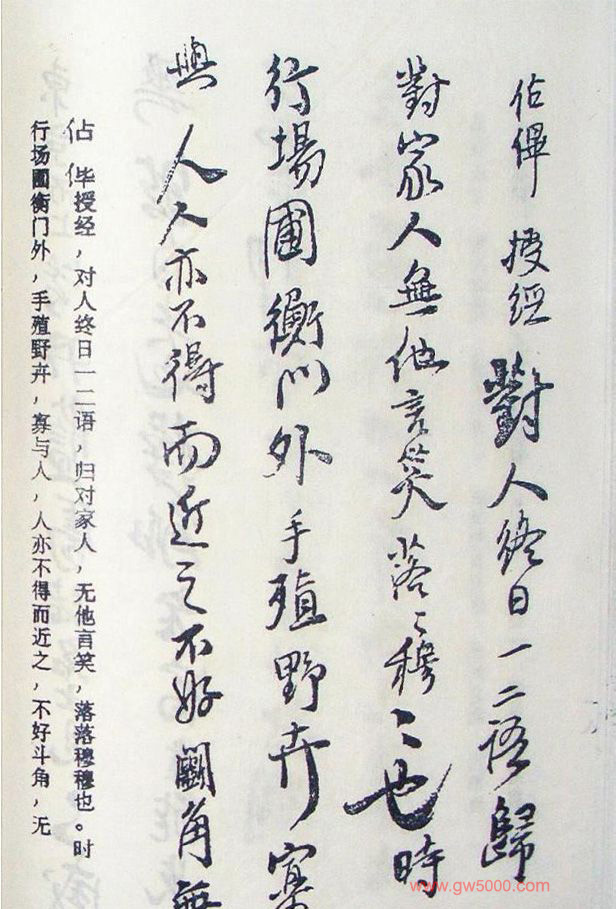 佔 授經對人終日一二語歸
對家人無他言笑落〻穆〻也時
行場圃衡門外手殖野卉寡
與人人亦不得而近之不好鬭角無
佔亻毕授经，对人终日一二语，归对家人，无他言笑，落落穆穆也。时
行场圃衡门外，手殖野卉，寡与人，人亦不得而近之，不好斗角，无
www.gw5000.com